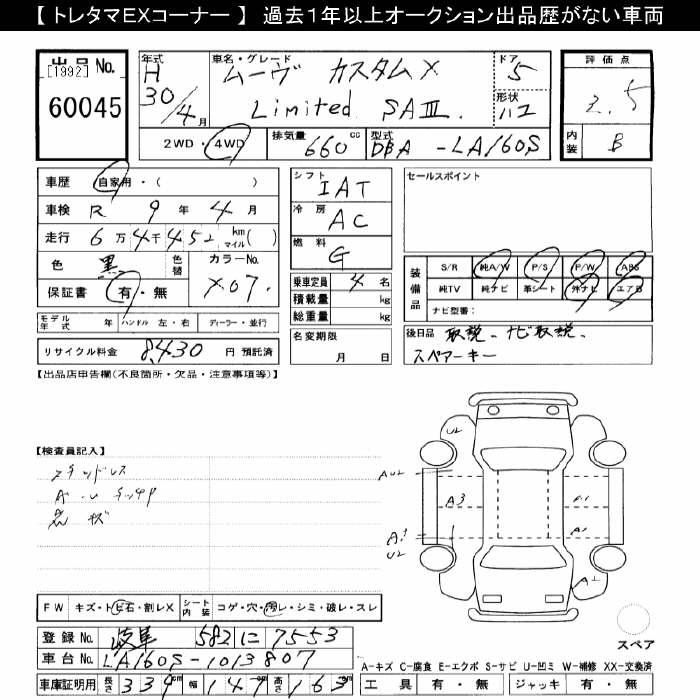 【 トレタマEXコーナー 】 過去1年以上オークション出品歴がない車両
出品 No.
[1992]
60045
年式
H
30/4月
車名・グレード
ムーヴ カスタムX
Limited SAⅢ
ドア
5
形状
ハコ
2WD・4WD
排気量
660 cc
型式
DBA -LA160S
評価点
3.5
内装
B
車歴 自家用・( )
車検 R 9 年 4 月
走行 6 万 4 千 452 km マイル ( )
色 黒 色替 カラーNo. X07
保証書 有・無
モデル年式 年 ハンドル 左・右 ディーラー・並行
リサイクル料金 8,430 円 預託済
シフト IAT
冷房 AC
燃料 G
乗車定員 4 名
積載量 kg
総重量 kg
名変期限
月 日
セールスポイント
装備品
S/R 純A/W P/S P/W ABS
純TV 純ナビ 革シート 外ナビ エアB
ナビ型番:
後日品 取説、ナビ取説、
スペアーキー
【出品店申告欄(不良箇所・欠品・注意事項等)】
【検査員記入】
スタッドレス
U2
AU2
A3
A1
A3
U2
A1
A1
FW キズ・トビ石・割レX シート内装 コゲ・穴・汚レ・シミ・破レ・スレ
登録 No. 岐阜 582 に 7553
車台 No. LA160S-1013807
車庫証明用 長さ 339 cm 幅 147 cm 高さ 163 cm
スペア
A-キズ C-腐食 E-エクボ S-サビ U-凹ミ W-補修 XX-交換済
工具 有・無 ジャッキ 有・無